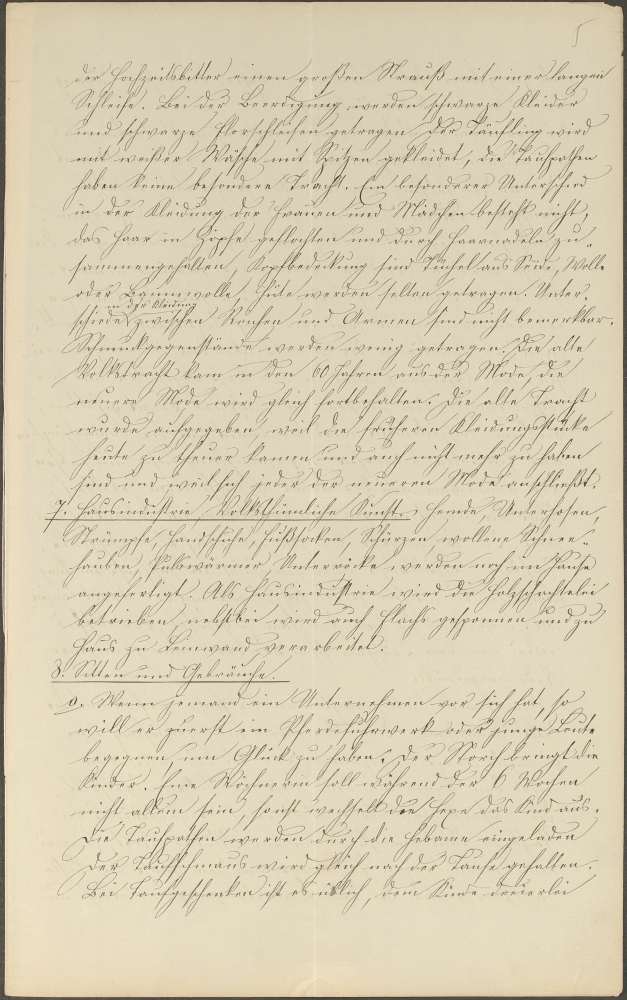 5
der Hochzeitsbitter einen großen Strauß mit einer langen
Schleife. Bei der Beerdigung werden schwarze Kleider
und schwarze Florschleifen getragen. Der Täufling wird
mit weißer Wäsche mit Spitzen gekleidet, die Taufpathen
haben keine besondere Tracht. Ein besonderer Unterschied
in der Kleidung der Frauen und Mädchen besteht nicht,
das Haar in Zöpfe geflochten und durch Haarnadeln zu-
sammengehalten, Kopfbedeckung sind Tüchel aus Seide, Wolle
oder Baumwolle, Hüte werden selten getragen. Unter-
in der Kleidung
schiede zwischen Reichen und Armen sind nicht bemerkbar.
Schmuckgegenstände werden wenig getragen. Die alte
Volkstracht kam in den 60 Jahren aus der Mode, die
neuere Mode wird gleich fortbehalten. Die alte Tracht
wurde aufgegeben weil die früheren Kleidungsstücke
heute zu theuer kamen und auch nicht mehr zu haben
sind und weil sich jeder der neueren Mode anschließt.
7. Hausindustrie, Volksthümliche Kunst. Hemde, Unterhosen,
Strümpfe, Handschuhe, Fußsocken, Schürzen, wollene Schnee-
hauben, Pulswärmer, Unterröcke werden noch im Hause
angefertigt. Als Hausindustrie wird die Holzschachtelei
betrieben, nebstbei wird auch Flachs gesponnen und zu
Haus zu Leinwand verarbeitet.
8. Sitten und Gebräuche.
a. Wenn jemand ein Unternehmen vor sich hat, so
will er zuerst ein Pferdefuhrwerk oder junge Leute
begegnen, um Glück zu haben. Der Storch bringt die
Kinder. Eine Wöchnerin soll während der 6 Wochen
nicht allein sein, sonst wechselt die Hexe das Kind aus.
Die Taufpathen werden durch die Hebame eingeladen
Der Taufschmaus wird gleich nach der Taufe gehalten.
Bei Taufgeschenken ist es üblich, dem Kinde dreierlei